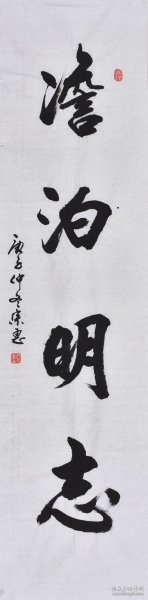 澹泊明志
庚子仲冬